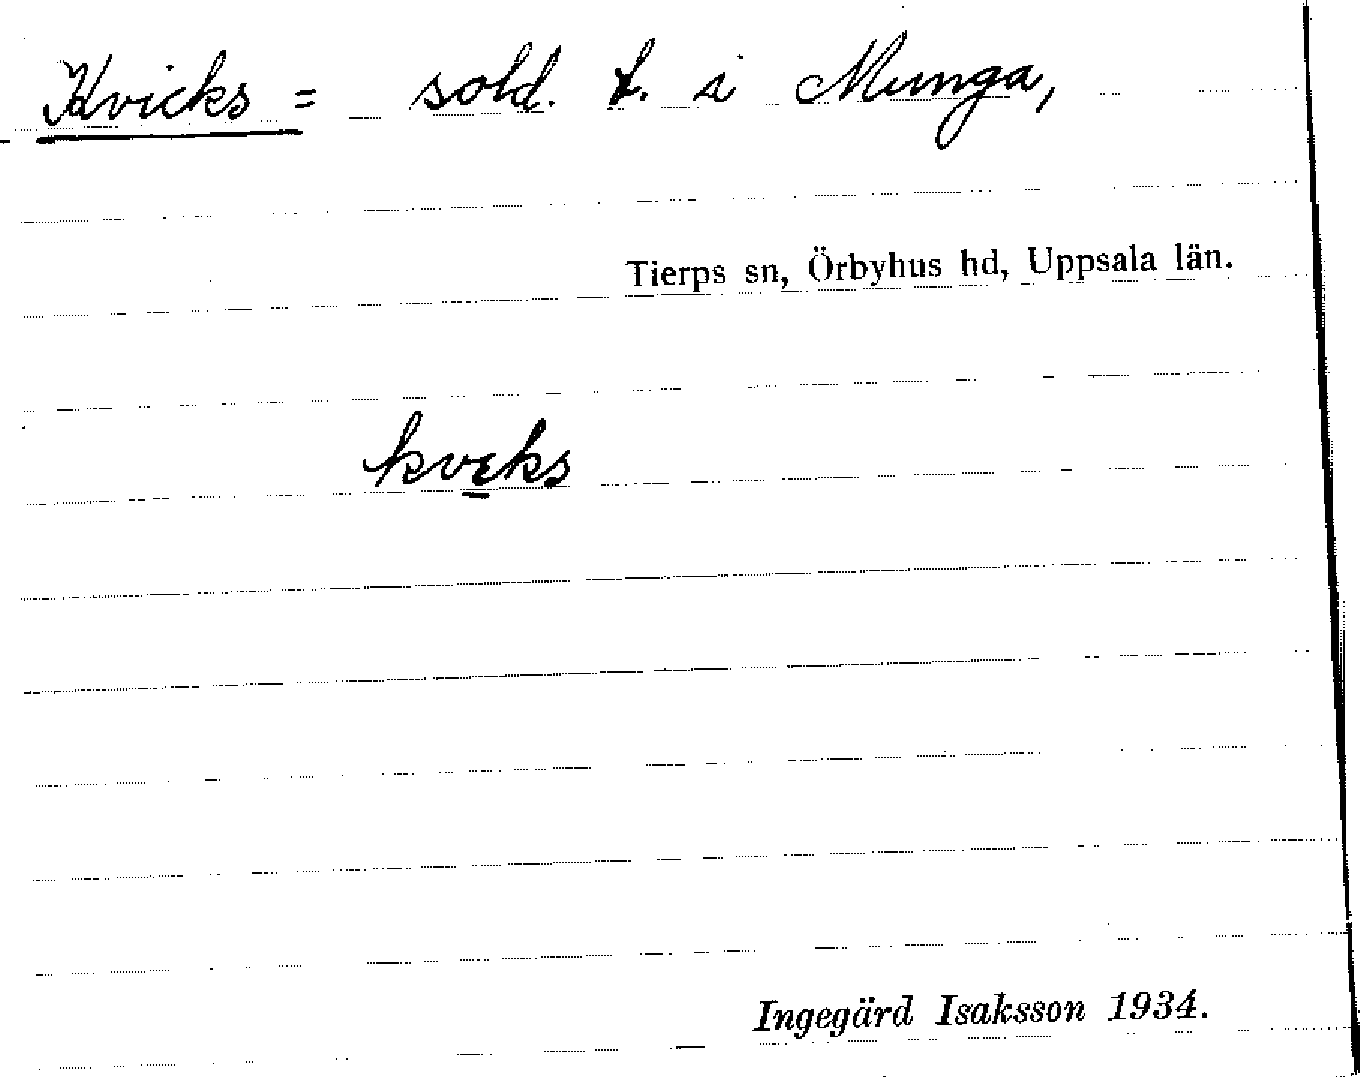 Kvicks = sold. t. i Munga,
Tierps sn, Örbyhus hd, Uppsala län.
kvɛks
Ingegärd Isaksson 1934.